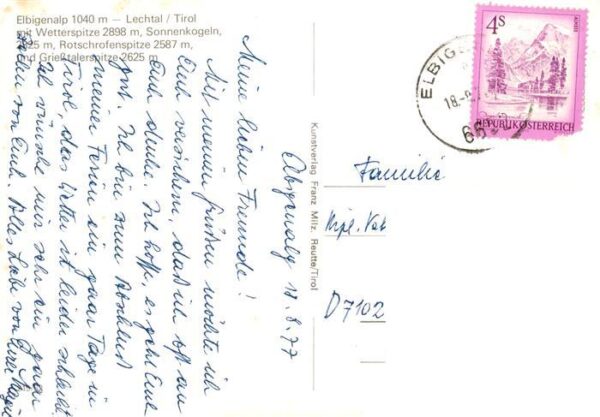 Elbigenalp 1040 m — Lechtal / Tirol
mit Wetterspitze 2898 m, Sonnenkogeln,
m, Rotschrofenspitze 2587 m,
und Grießtalerspitze 2625 m
4S
ALMSEE
REPUBLIK ÖSTERREICH
ELBIG
18.-
66
Kunstverlag Franz Milz, Reutte/Tirol
18.8.77
Meine lieben Freunde!
Mit meinen Grüßen möchte ich
Euch versichern, daß ich oft an
Euch denke. Ich hoffe, es geht Euch
gut. Ich bin zum Abschluß
meiner Ferien ein paar Tage in
Tirol, das Wetter ist leider schlecht.
Ich wünsche mir sehr ein paar
Zeilen von Euch. Alles Liebe von Eurer
Familie
Dipl.
D7102